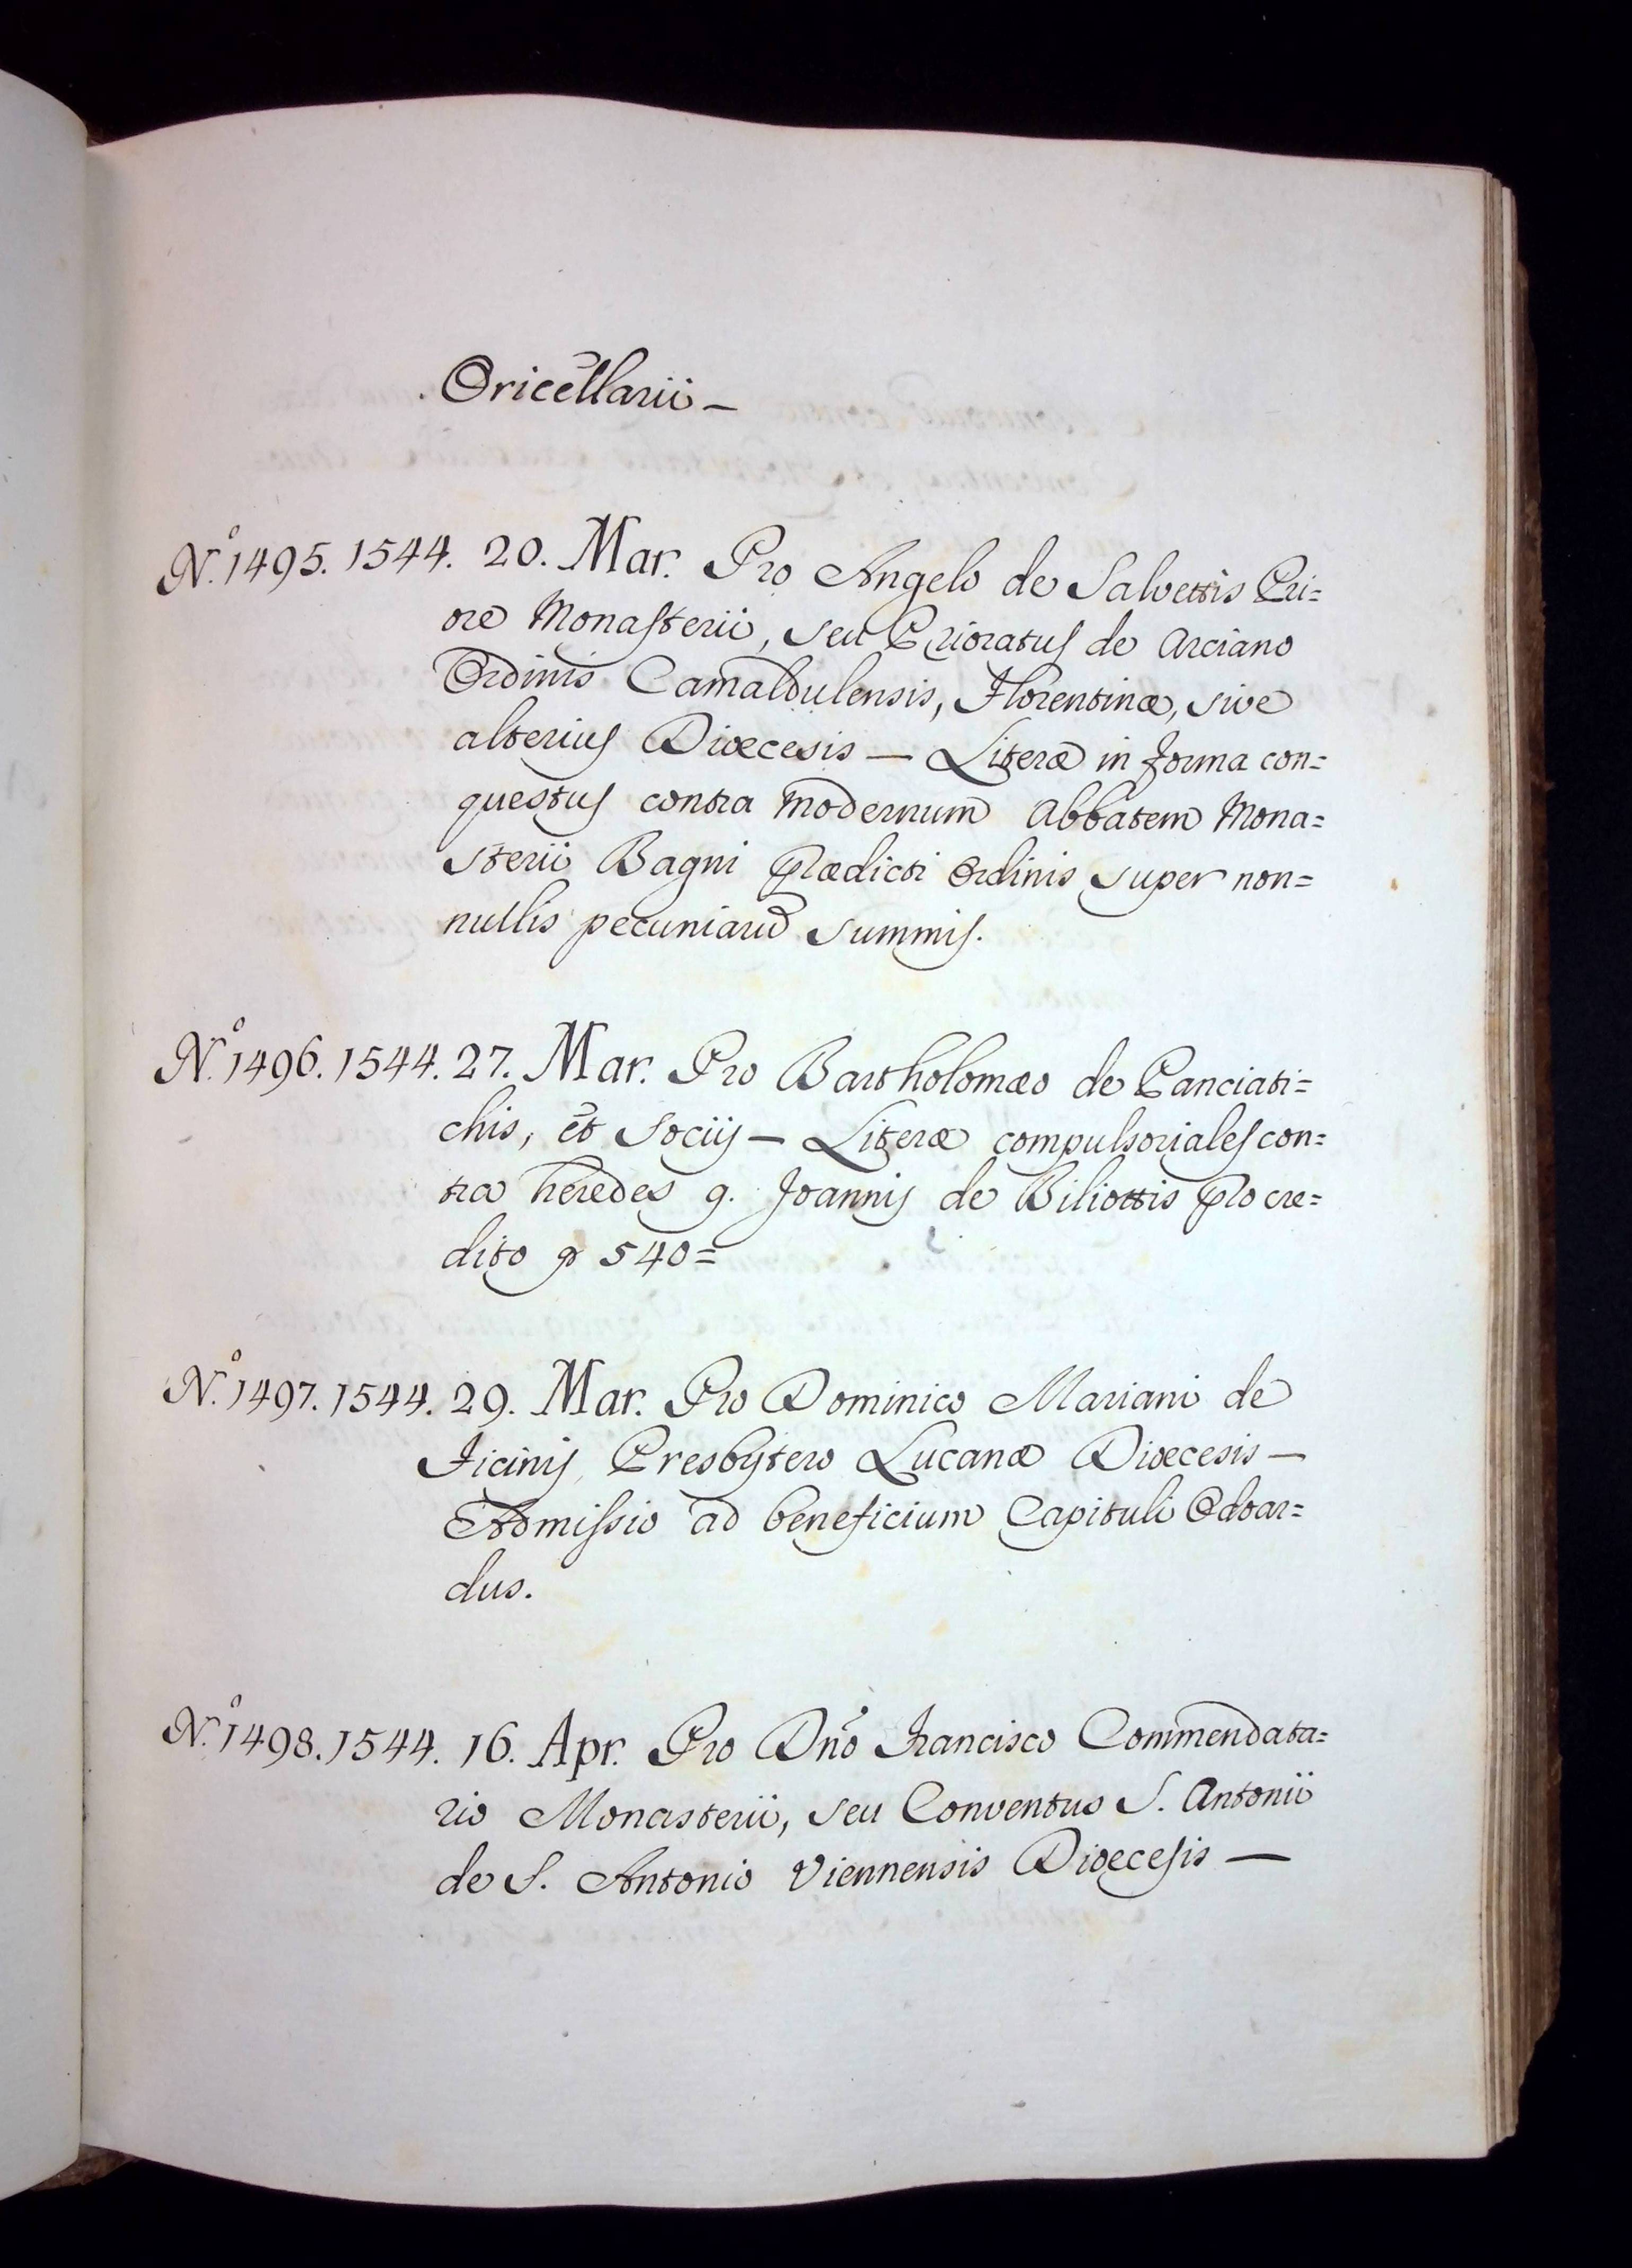 Oricellarii —
N.º 1495. 1544. 20. Mar. Pro Angelo de Salvettis Pri=
ore Monasterii, seu Prioratus de Arciano
Ordinis Camaldulensis, Florentinæ, sive
alterius Diœcesis — Literæ in forma con=
questus contra modernum Abbatem Mona=
sterii Bagni prædicti Ordinis super non=
nullis pecuniarũ summis.
N.º 1496. 1544. 27. Mar. Pro Bartholomæo de Panciati=
chis, et Sociis — Literæ compulsoriales con=
tra heredes q. Joannis de Biliottis pro cre=
dito 540=
N.º 1497. 1544. 29. Mar. Pro Dominico Mariani de
Ficinis Presbytero Lucanæ Diœcesis —
Admissio ad beneficium Capituli Odoar=
dus.
N.º 1498. 1544. 16. Apr. Pro Dño Francisco Commendata=
rio Monasterii, seu Conventus S. Antonii
de S. Antonio Viennensis Diœcesis —